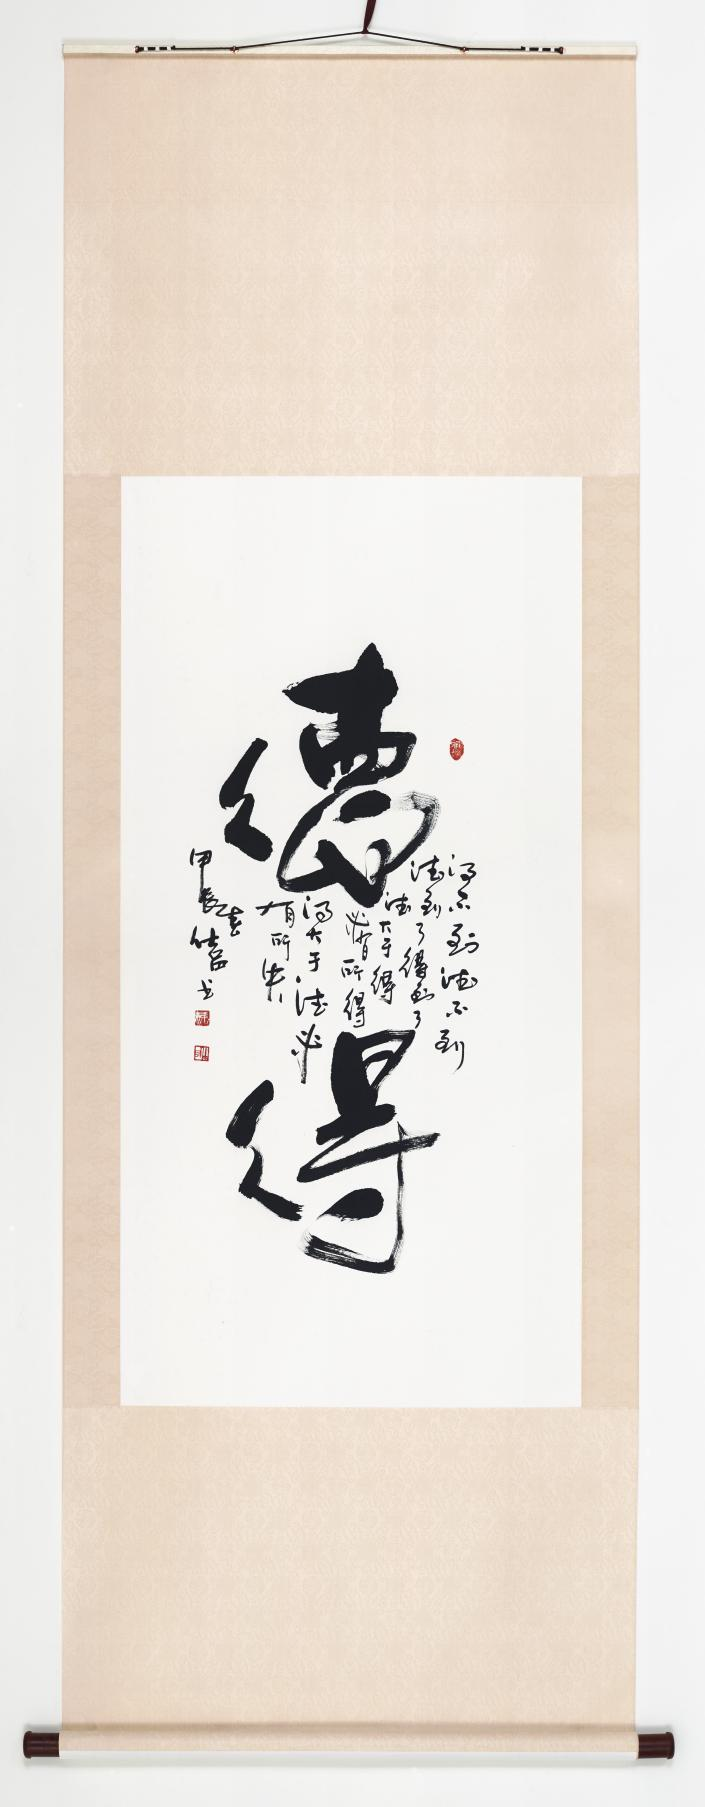 德
得
得不到德不到
德到了得到了
德大于得
必有所得
得大于德必
有所失
甲辰春
书